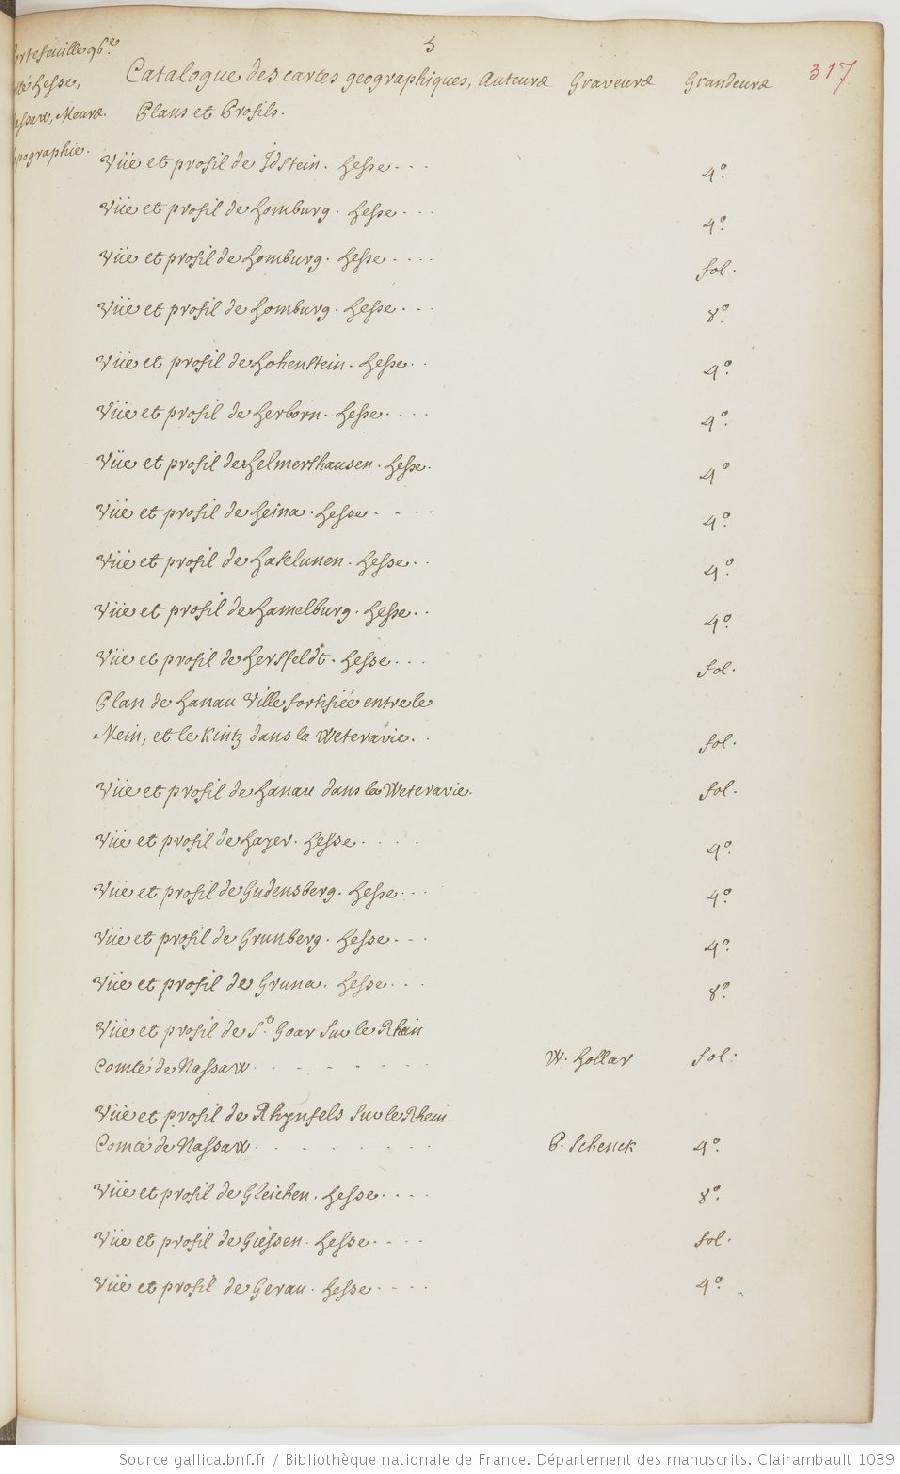 5
317
Portefeuille 96.e
Hesse,
Nassaw, Meurs.
Topographie.
Catalogue des cartes geographiques, Auteurs Graveurs Grandeurs
Plans et Profils.
Vüe et profil de Idstein. Hesse... 4.º
Vüe et profil de Homburg. Hesse... 4.º
Vüe et profil de Homburg. Hesse.... fol.
Vüe et profil de Homburg. Hesse... 8.º
Vüe et profil de Hohenstein. Hesse.. 4.º
Vüe et profil de Herborn. Hesse.... 4.º
Vüe et profil de Helmershausen. Hesse. 4.º
Vüe et profil de Heina. Hesse... 4.º
Vüe et profil de Haselunen. Hesse.. 4.º
Vüe et profil de Hamelburg. Hesse.. 4.º
Vüe et profil de Hersfeldt. Hesse... fol.
Plan de Hanau Ville fortifiée entre le
Mein, et le Kintz dans la Weteravie.. fol.
Vüe et profil de Hanau dans la Weteravie. fol.
Vüe et profil de Hayer. Hesse.... 4.º
Vüe et profil de Gudensberg. Hesse... 4.º
Vüe et profil de Grunberg. Hesse... 4.º
Vüe et profil de Gruna. Hesse... 8.º
Vüe et profil de S.t Goar sur le Rhein
Comté de Nassaw....... W. Hollar fol.
Vüe et profil de Rhynfels sur le Rhein
Comté de Nassaw....... P. Schenck 4.º
Vüe et profil de Gleichen. Hesse.... 8.º
Vüe et profil de Giessen. Hesse.... fol.
Vüe et profil de Gerau. Hesse.... 4.º
Source gallica.bnf.fr / Bibliothèque nationale de France. Département des manuscrits. Clairambault 1039